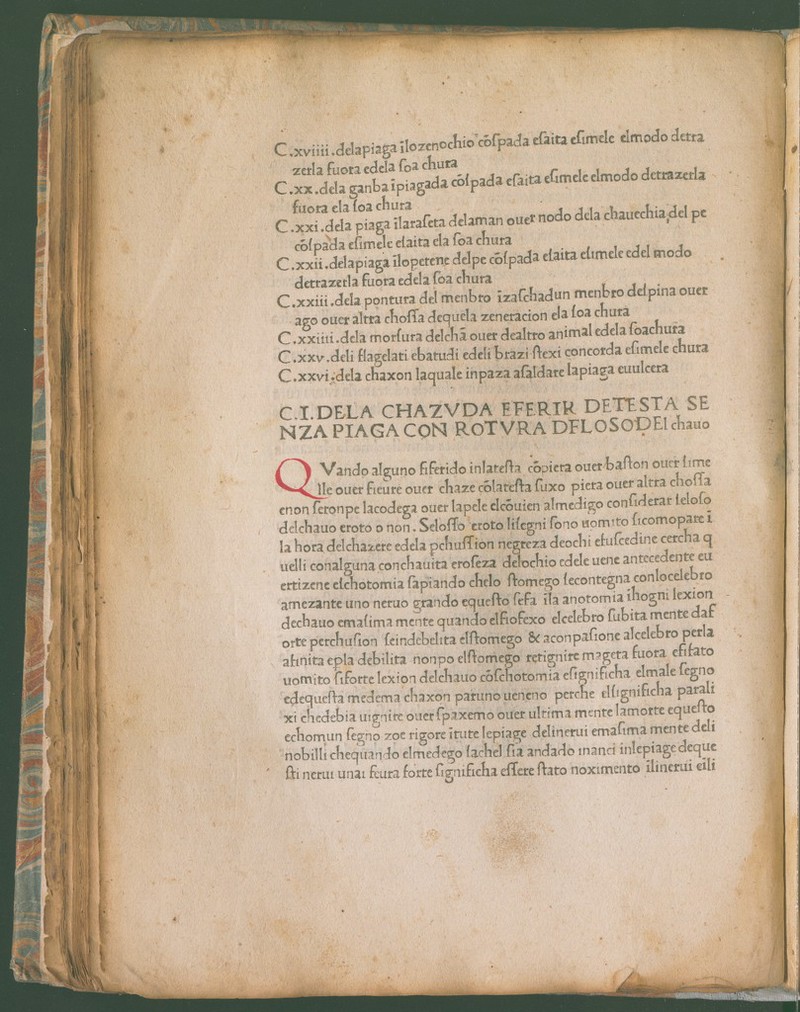 C.xviiii.delapiaga ĩlozenochio cõſpada eſaita eſimele elmodo detra
zerla fuora edela ſoa chura
C.xx.dela ganba ĩpiagada cõſpada eſaita eſimele elmodo detrazerla
fuora ela ſoa chura
C.xxi.dela piaga ĩlaraſeta delaman ouer nodo dela chauechia del pe
cõſpada eſimele eſaita ela ſoa chura
C.xxii.delapiaga ĩlopetene delpe cõſpada eſaita eſimele edel modo
detrazerla fuora edela ſoa chura
C.xxiii.dela pontura del menbro ĩzaſchadun menbro deſpina ouer
ago ouer altra choſſa dequela zeneracion ela ſoa chura
C.xxiiii.dela morſura delchã ouer dealtro animal edela ſoachura
C.xxv.deli flagelati ebatudi edeli brazi ſtexi concorda eſimele chura
C.xxvi.dela chaxon laquale inpaza aſaldare lapiaga euulcera
C.I.DELA CHAZVDA EFERIR DETESTA SE
NZA PIAGA CON ROTVRA DELOSO DEl chauo
QVando alguno ſiferido inlateſta cõpiera ouer baſton ouer ſime
lle ouer ficure ouer chaze cõlateſta ſuxo piera ouer altra choſſa
enon ſeronpe lacodega ouer lapele elcõuien almedigo conſiderar ſeloſo
delchauo eroto o non. Seloſſo eroto liſegni ſono uomito ſicomopare ĩ
la hora delchazere edela pchuſſion negreza deochi eſuſcedine cercha q
uelli conalguna conchauita eroſeza delochio edele uene antecedente eu
ertizene eſchotomia ſapiando chelo ſtomego ſecontegna conlocelebro
amezante uno neruo grando equeſto ſeſa ĩla anotomia ĩhogni lexion
dechauo emaſima mente quando elſioſexo elcelebro ſubita mente daſ
orte perchuſion ſeindebelita elſtomego & aconpaſione alcelebro perla
aſinita epla debilita nonpo elſtomego retignire mageta fuora eſiſato
uomito ſiforte lexion delchauo cõſchotomia eſignificha elmale ſegno
edequeſta medema chaxon paruno ueneno perche elſignificha parali
xi chedebia uignire ouer ſpaxemo ouer ultima mente lamorte equeſto
echomun ſegno zoe rigore ĩtute lepiage delinerui emaſima mente deli
nobilli chequando elmedego ſachel ſia andado inanci inlepiage deque
ſti nerui unai feura forte ſignificha eſſere ſtato noximento ĩlinerui eili